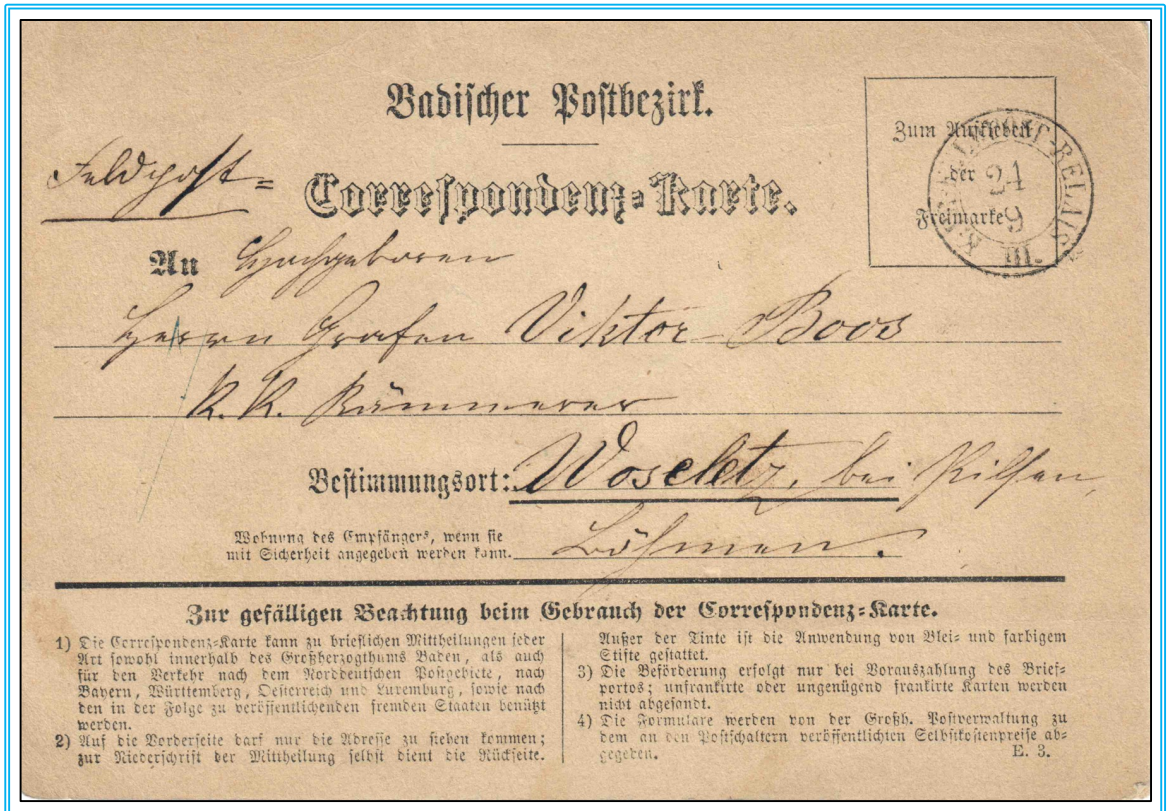 Badischer Postbezirk.
Feldpost=
Correspondenz=Karte.
Zum Aufkleben
der
Freimarke
K.PR.FELDPOST-RELAIS
24
9
III.
An Hochgeboren
Herrn Grafen Viktor Boos
K. K. Kämmerer
Bestimmungsort: Woseletz, bei Pilsen,
Wohnung des Empfängers, wenn sie
mit Sicherheit angegeben werden kann.
Böhmen.
Zur gefälligen Beachtung beim Gebrauch der Correspondenz=Karte.
1) Die Correspondenz=Karte kann zu brieflichen Mittheilungen jeder
Art sowohl innerhalb des Großherzogthums Baden, als auch
für den Verkehr nach dem Norddeutschen Postgebiete, nach
Bayern, Württemberg, Oesterreich und Luxemburg, sowie nach
den in der Folge zu veröffentlichenden fremden Staaten benützt
werden.
2) Auf die Vorderseite darf nur die Adresse zu stehen kommen;
zur Niederschrift der Mittheilung selbst dient die Rückseite.
Außer der Tinte ist die Anwendung von Blei= und farbigem
Stifte gestattet.
3) Die Beförderung erfolgt nur bei Vorauszahlung des Brief=
portos; unfrankirte oder ungenügend frankirte Karten werden
nicht abgesandt.
4) Die Formulare werden von der Großh. Postverwaltung zu
dem an den Postschaltern veröffentlichten Selbstkostenpreise ab=
gegeben.
E. 3.